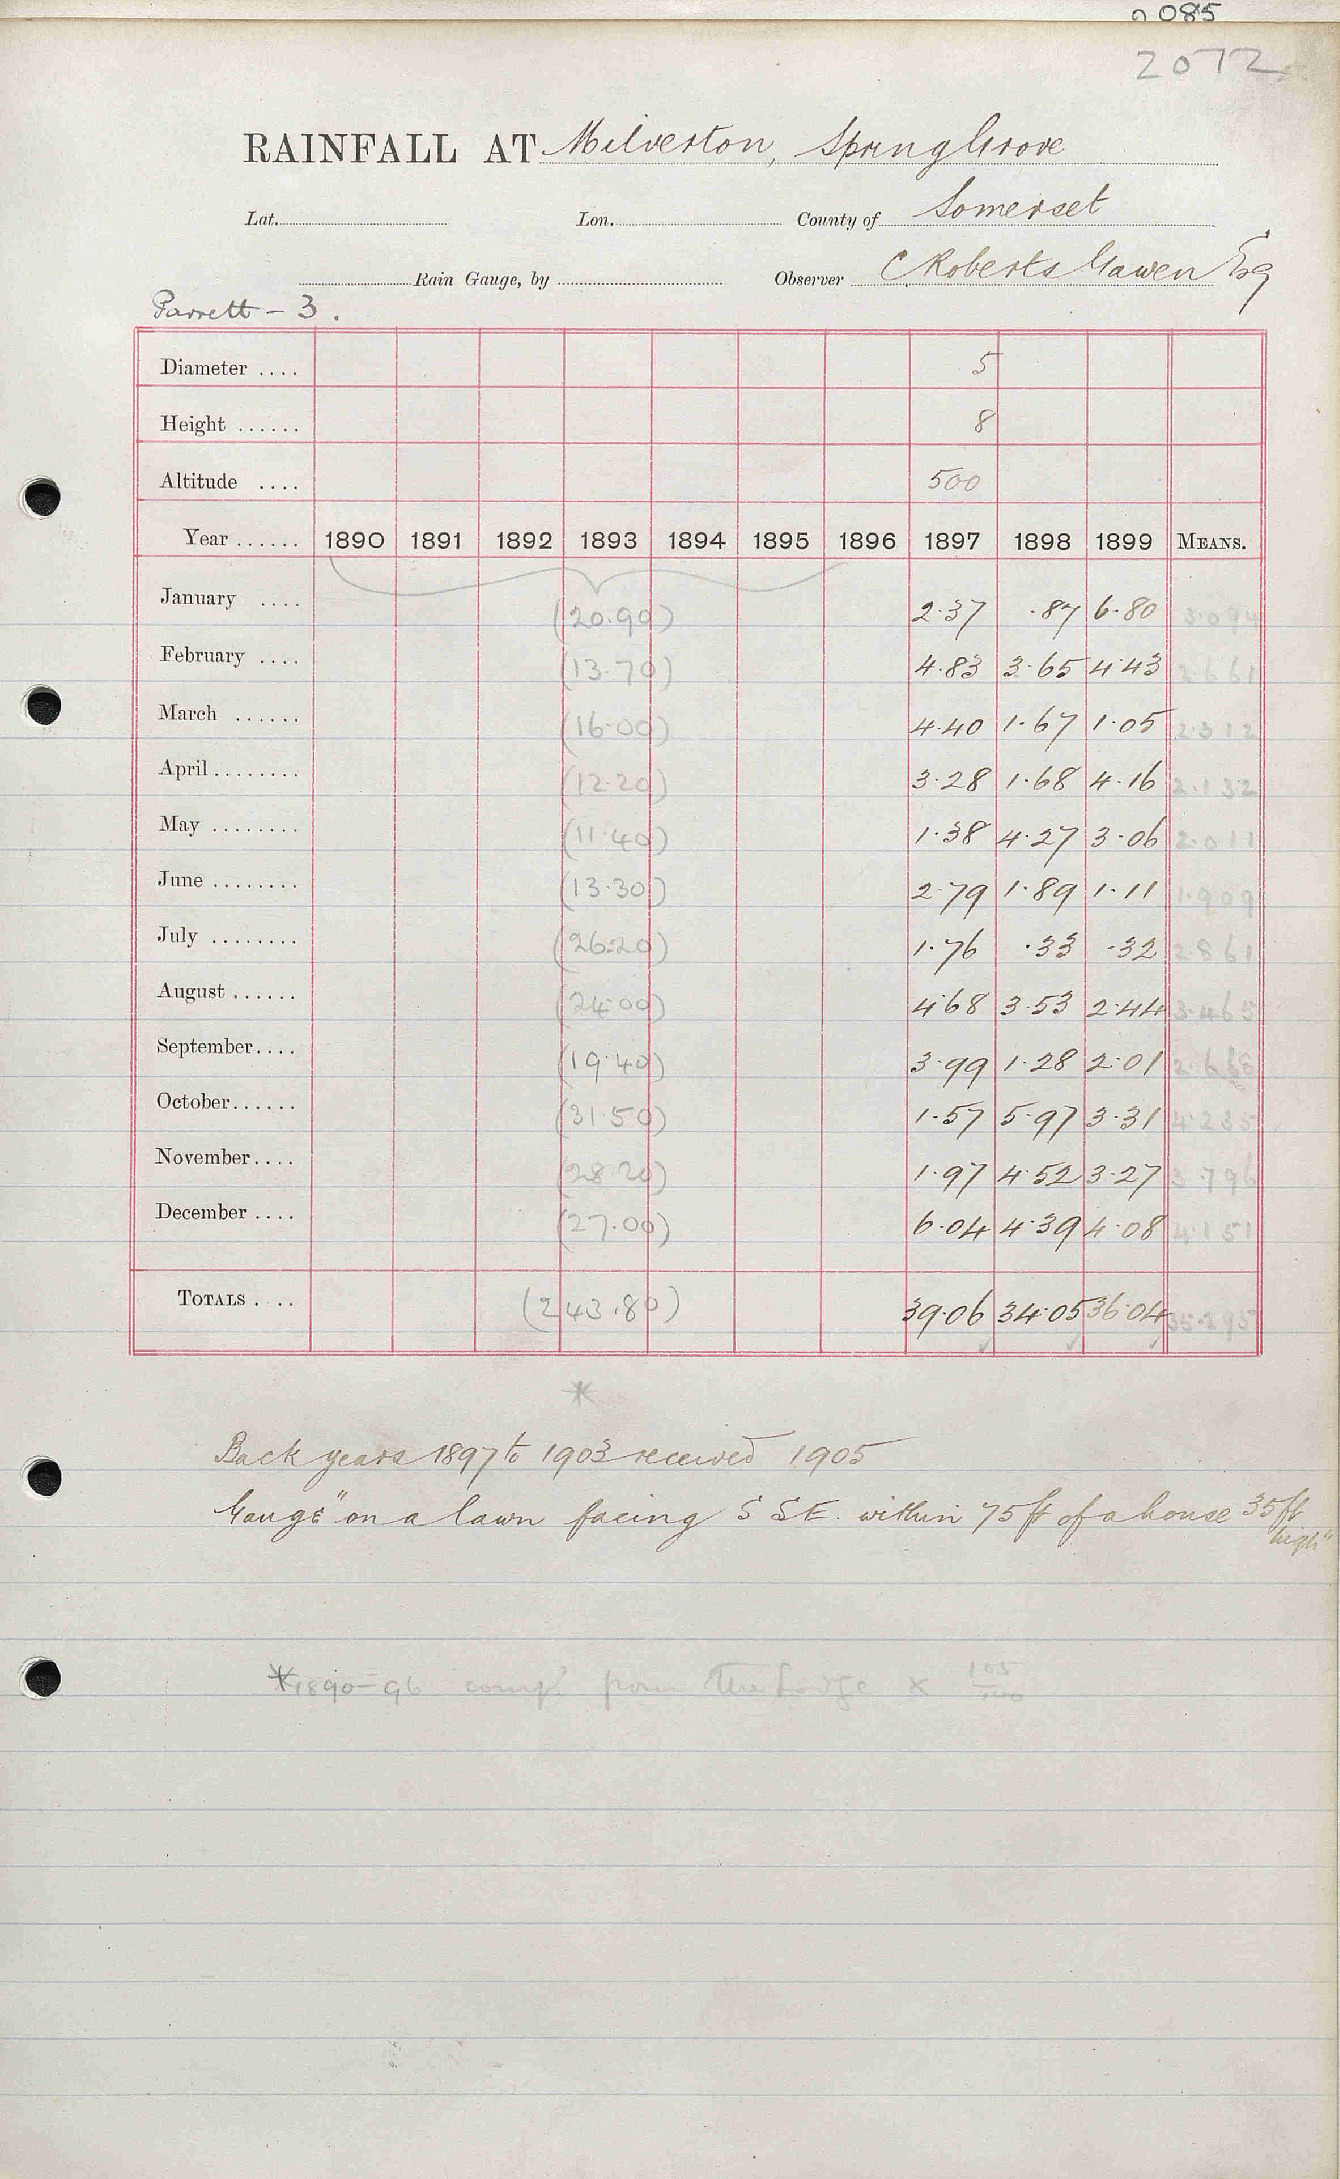 085
2072
RAINFALL AT Milverton, Spring Grove
Lat. Lon. County of Somerset
Rain Gauge, by Observer C Roberts Gawen Esq
Parrett - 3.
Diameter .... 5
Height ...... 8
Altitude .... 500
Year ...... 1890 1891 1892 1893 1894 1895 1896 1897 1898 1899 MEANS.
January .... (20.90) 2.37 .87 6.80 3.094
February .... (13.70) 4.83 3.65 4.43 2.661
March ...... (16.00) 4.40 1.67 1.05 2.312
April ........ (12.20) 3.28 1.68 4.16 2.132
May ........ (11.40) 1.38 4.27 3.06 2.011
June ........ (13.30) 2.79 1.89 1.11 1.909
July ........ (26.20) 1.76 .33 .32 2.861
August ...... (24.00) 4.68 3.53 2.44 3.465
September.... (19.40) 3.99 1.28 2.01 2.668
October...... (31.50) 1.57 5.97 3.31 4.235
November.... (28.20) 1.97 4.52 3.27 3.796
December .... (27.00) 6.04 4.39 4.08 4.151
TOTALS .... (243.80) 39.06 34.05 36.04 35.295
*
Back years 1897 to 1903 received 1905
Gauge "on a lawn facing S SE. within 75 ft of a house 35 ft
high"
*1890-96 comp. from The Lodge x 105/100